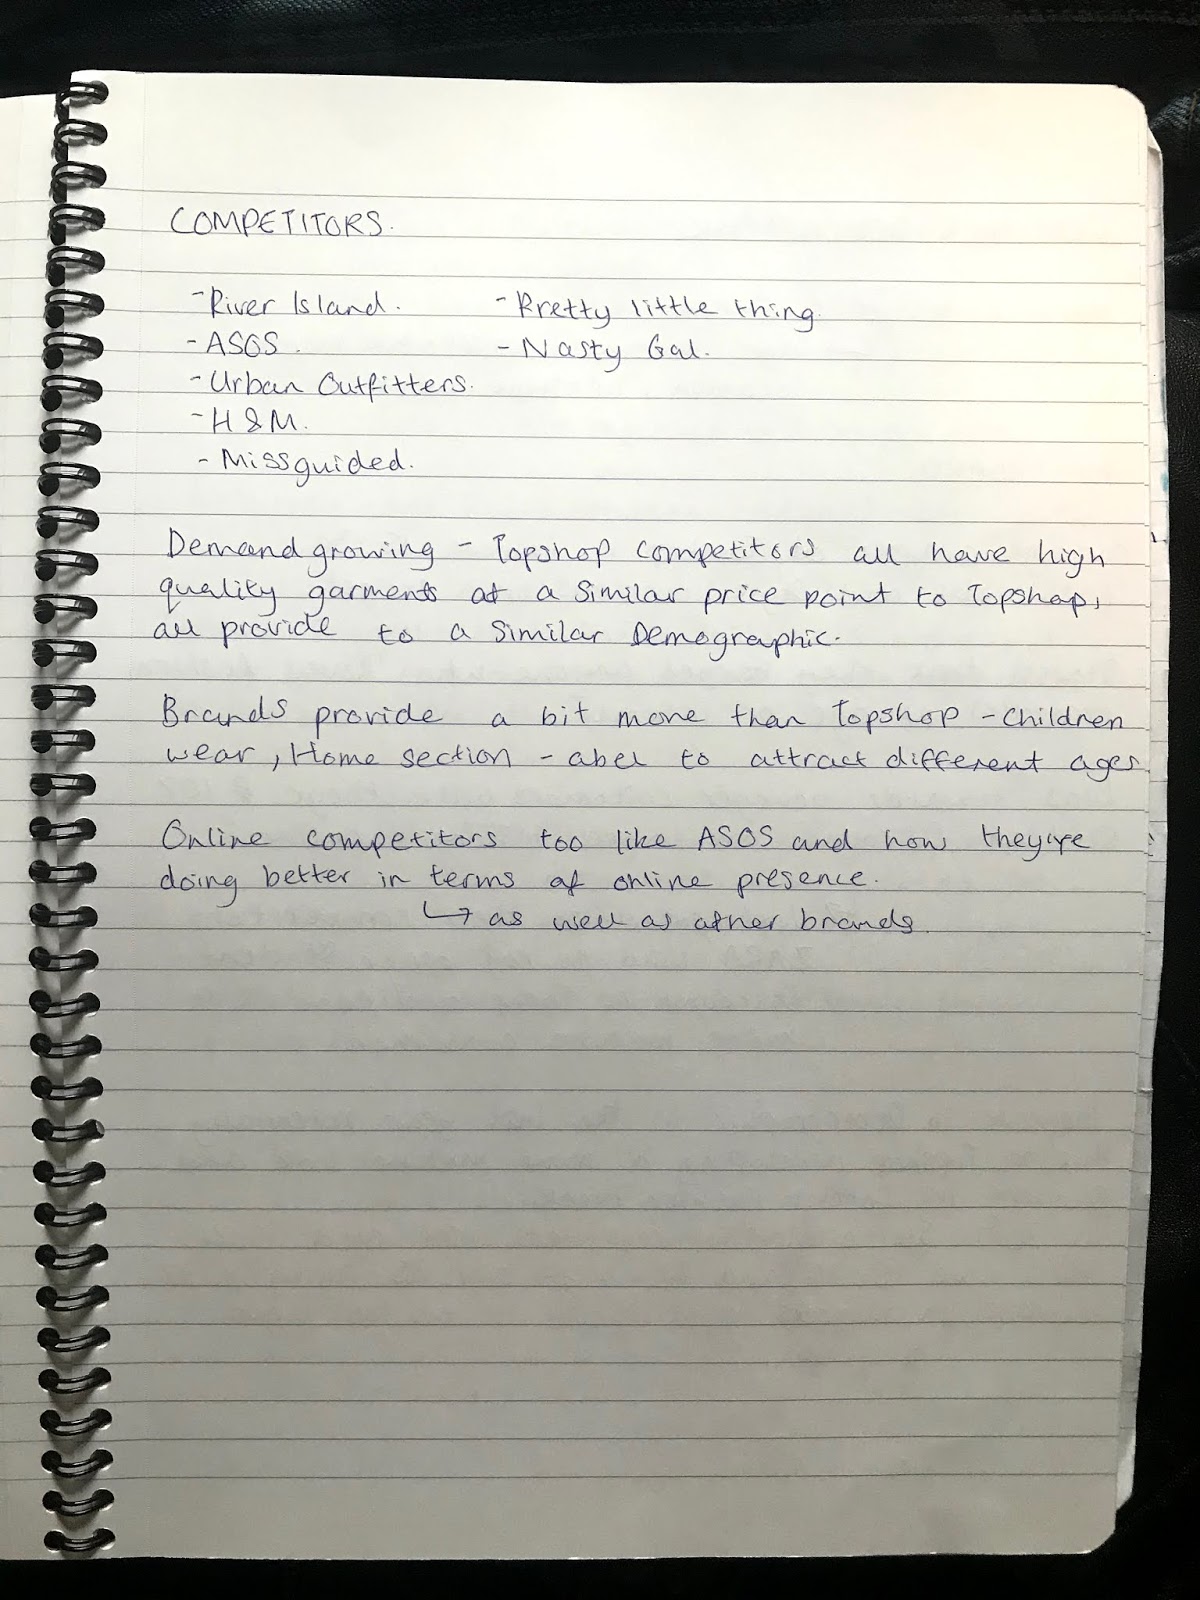 COMPETITORS.
- River Island.
- ASOS.
- Urban Outfitters.
- H&M.
- Missguided.
- Pretty little thing.
- Nasty Gal.
Demand growing - Topshop competitors all have high
quality garments at a similar price point to Topshop,
all provide to a similar Demographic.
Brands provide a bit more than Topshop - Children
wear, Home section - abel to attract different ages
Online competitors too like ASOS and how they're
doing better in terms of online presence.
↳ as well as other brands.